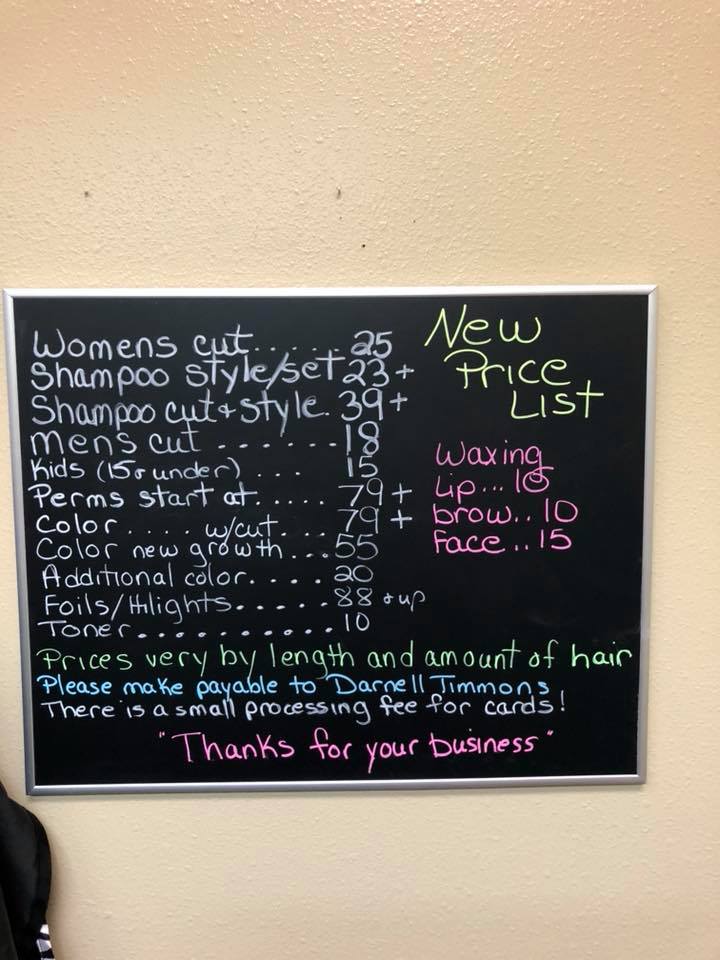 Womens cut...... 25
Shampoo style/set 23+
Shampoo cut + style. 39+
mens cut ....... 18
Kids (15 & under) ... 15
Perms start at..... 79+
Color.... w/cut... 79+
Color new growth...55
Additional color.... 20
Foils/Hilights...... 88 & up
Toner........... 10
New
Price
List
Waxing
Lip... 10
brow.. 10
Face.. 15
Prices very by length and amount of hair
Please make payable to Darnell Timmons
There is a small processing fee for cards!
"Thanks for your business"